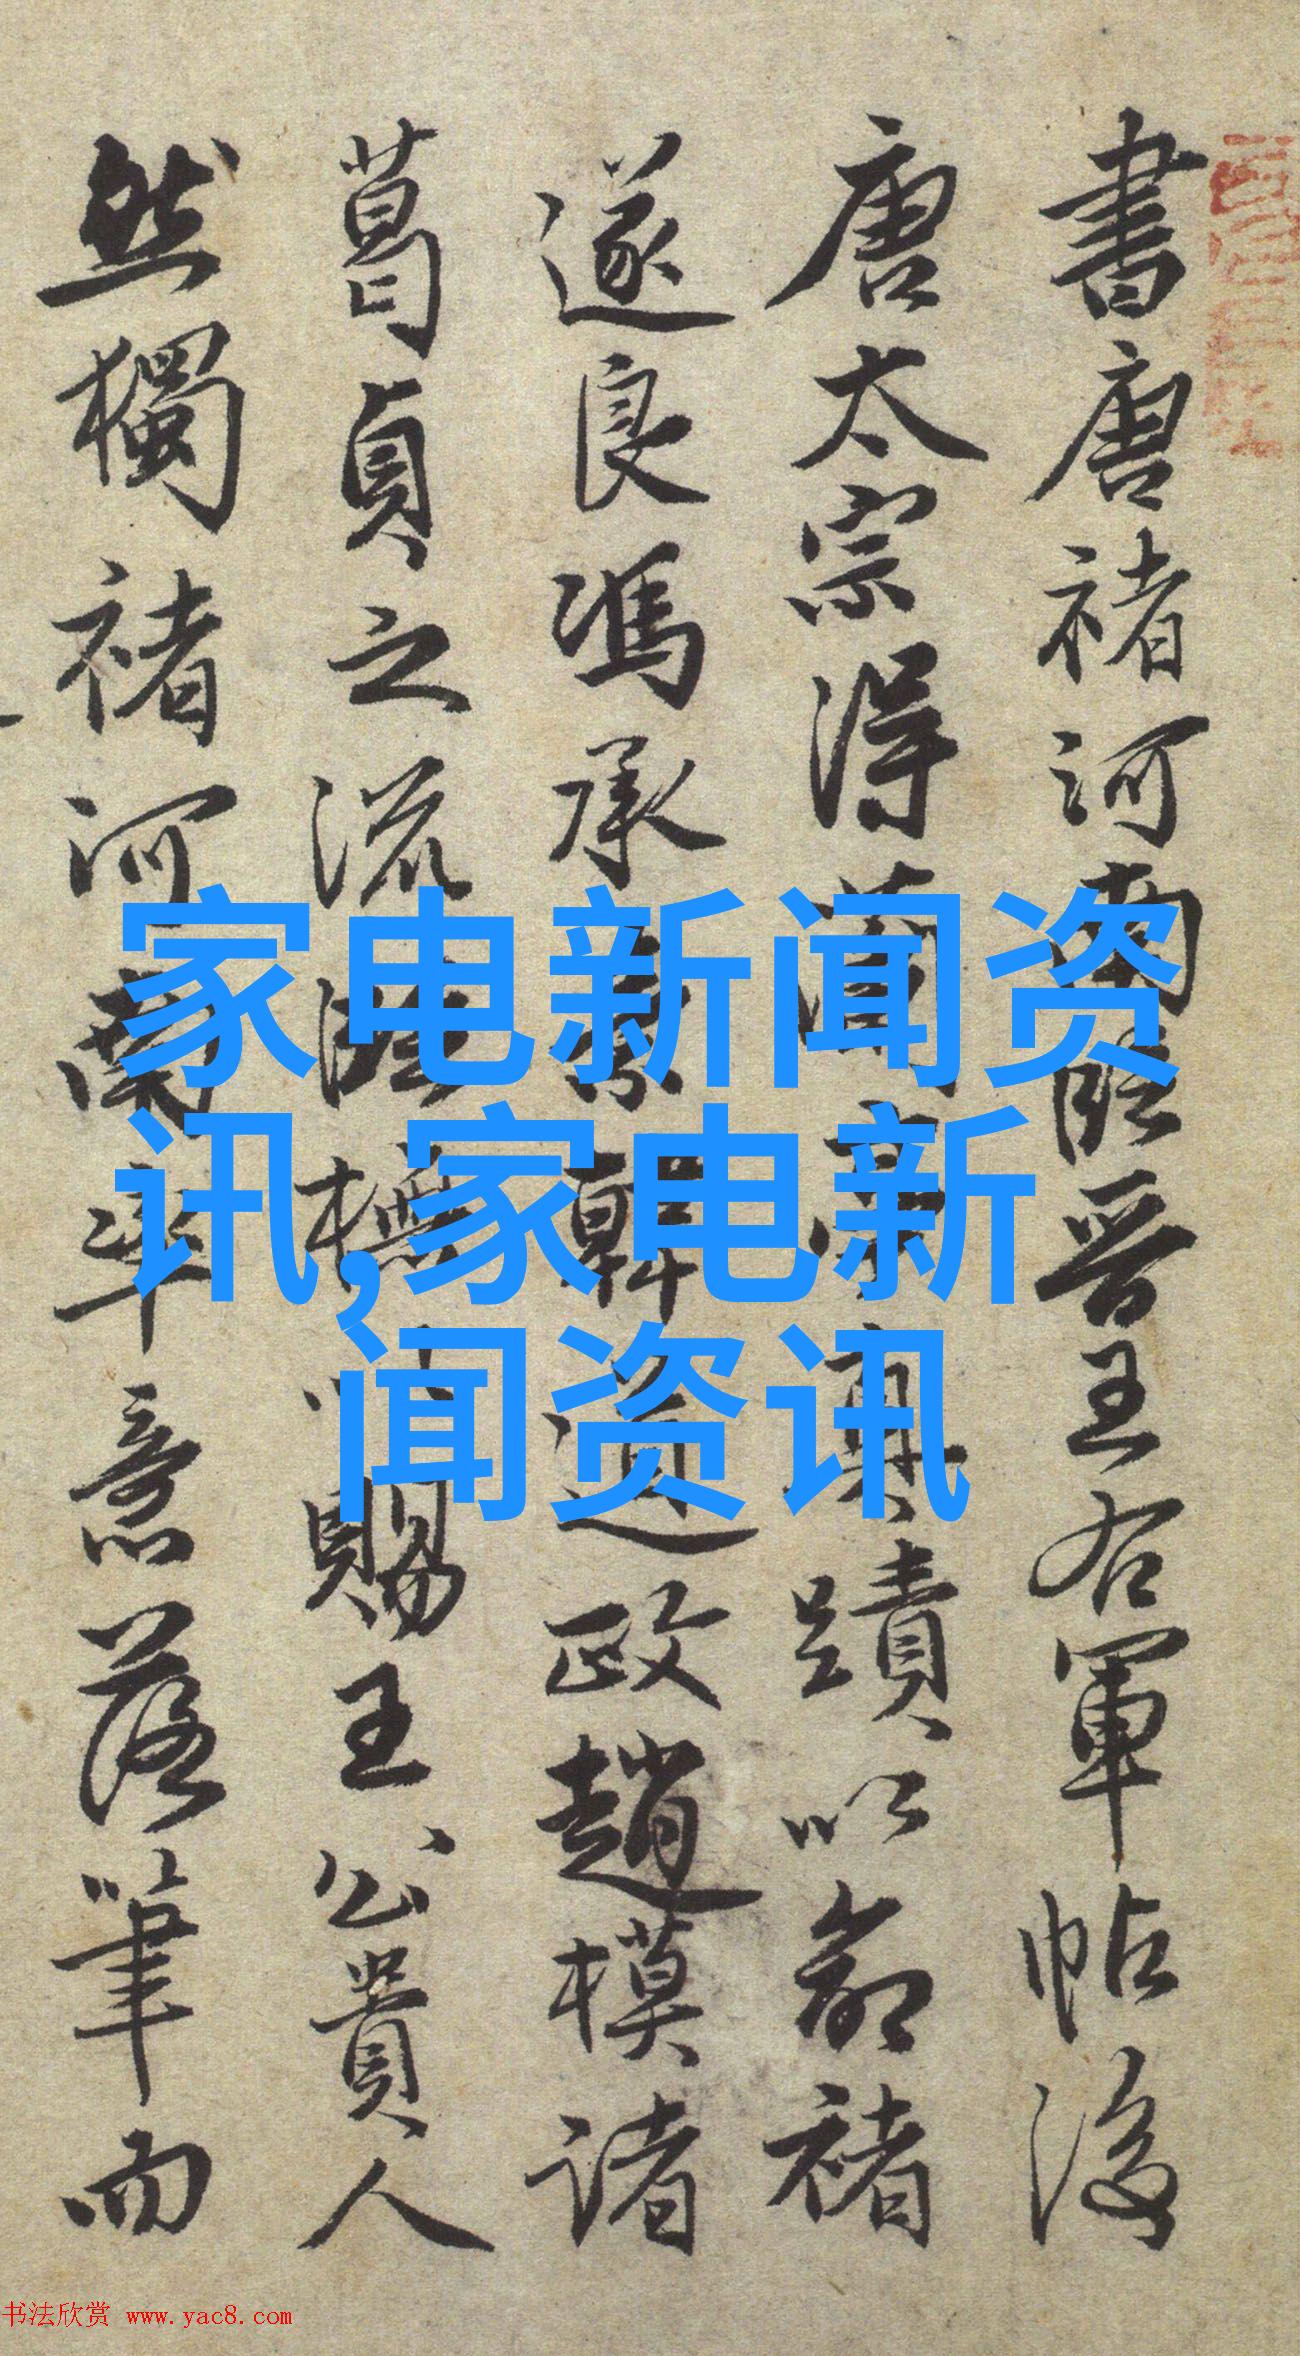 書唐褚河南臨晉王右軍帖後
唐太宗得蘭亭真蹟以命褚
遂良馮承素韓道政趙模諸
葛貞之流
賜王公貴人
然獨褚河南率意落筆而
家电新闻资
讯,家电新
闻资讯
书法欣赏 www.yac8.com